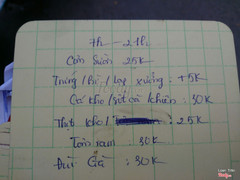 7h - 21h
Cơm Sườn 25K
Trứng / bì / lạp xưởng : +5K
Cá kho / sốt cà / chiên : 30K
Thịt kho / : 25K
Tôm ram : 30K
Đùi Gà : 30K